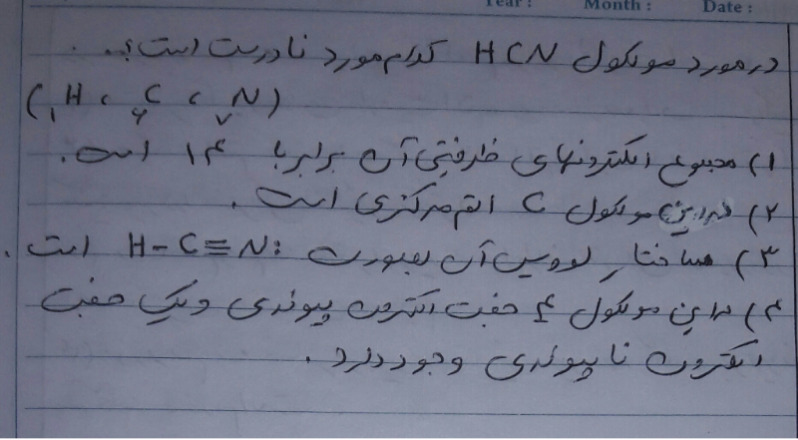 Year : Month : Date :
در مورد مولکول HCN کدام مورد نادرست است؟
(₁H ، ₆C ، ₇N)
۱) مجموع الکترونهای ظرفیتی آن برابر با ۱۴ است.
۲) در این مولکول C اتم مرکزی است.
۳) ساختار لوویس آن بصورت H-C≡N: است.
۴) در این مولکول ۴ جفت الکترون پیوندی و یک جفت
الکترون ناپیوندی وجود دارد.